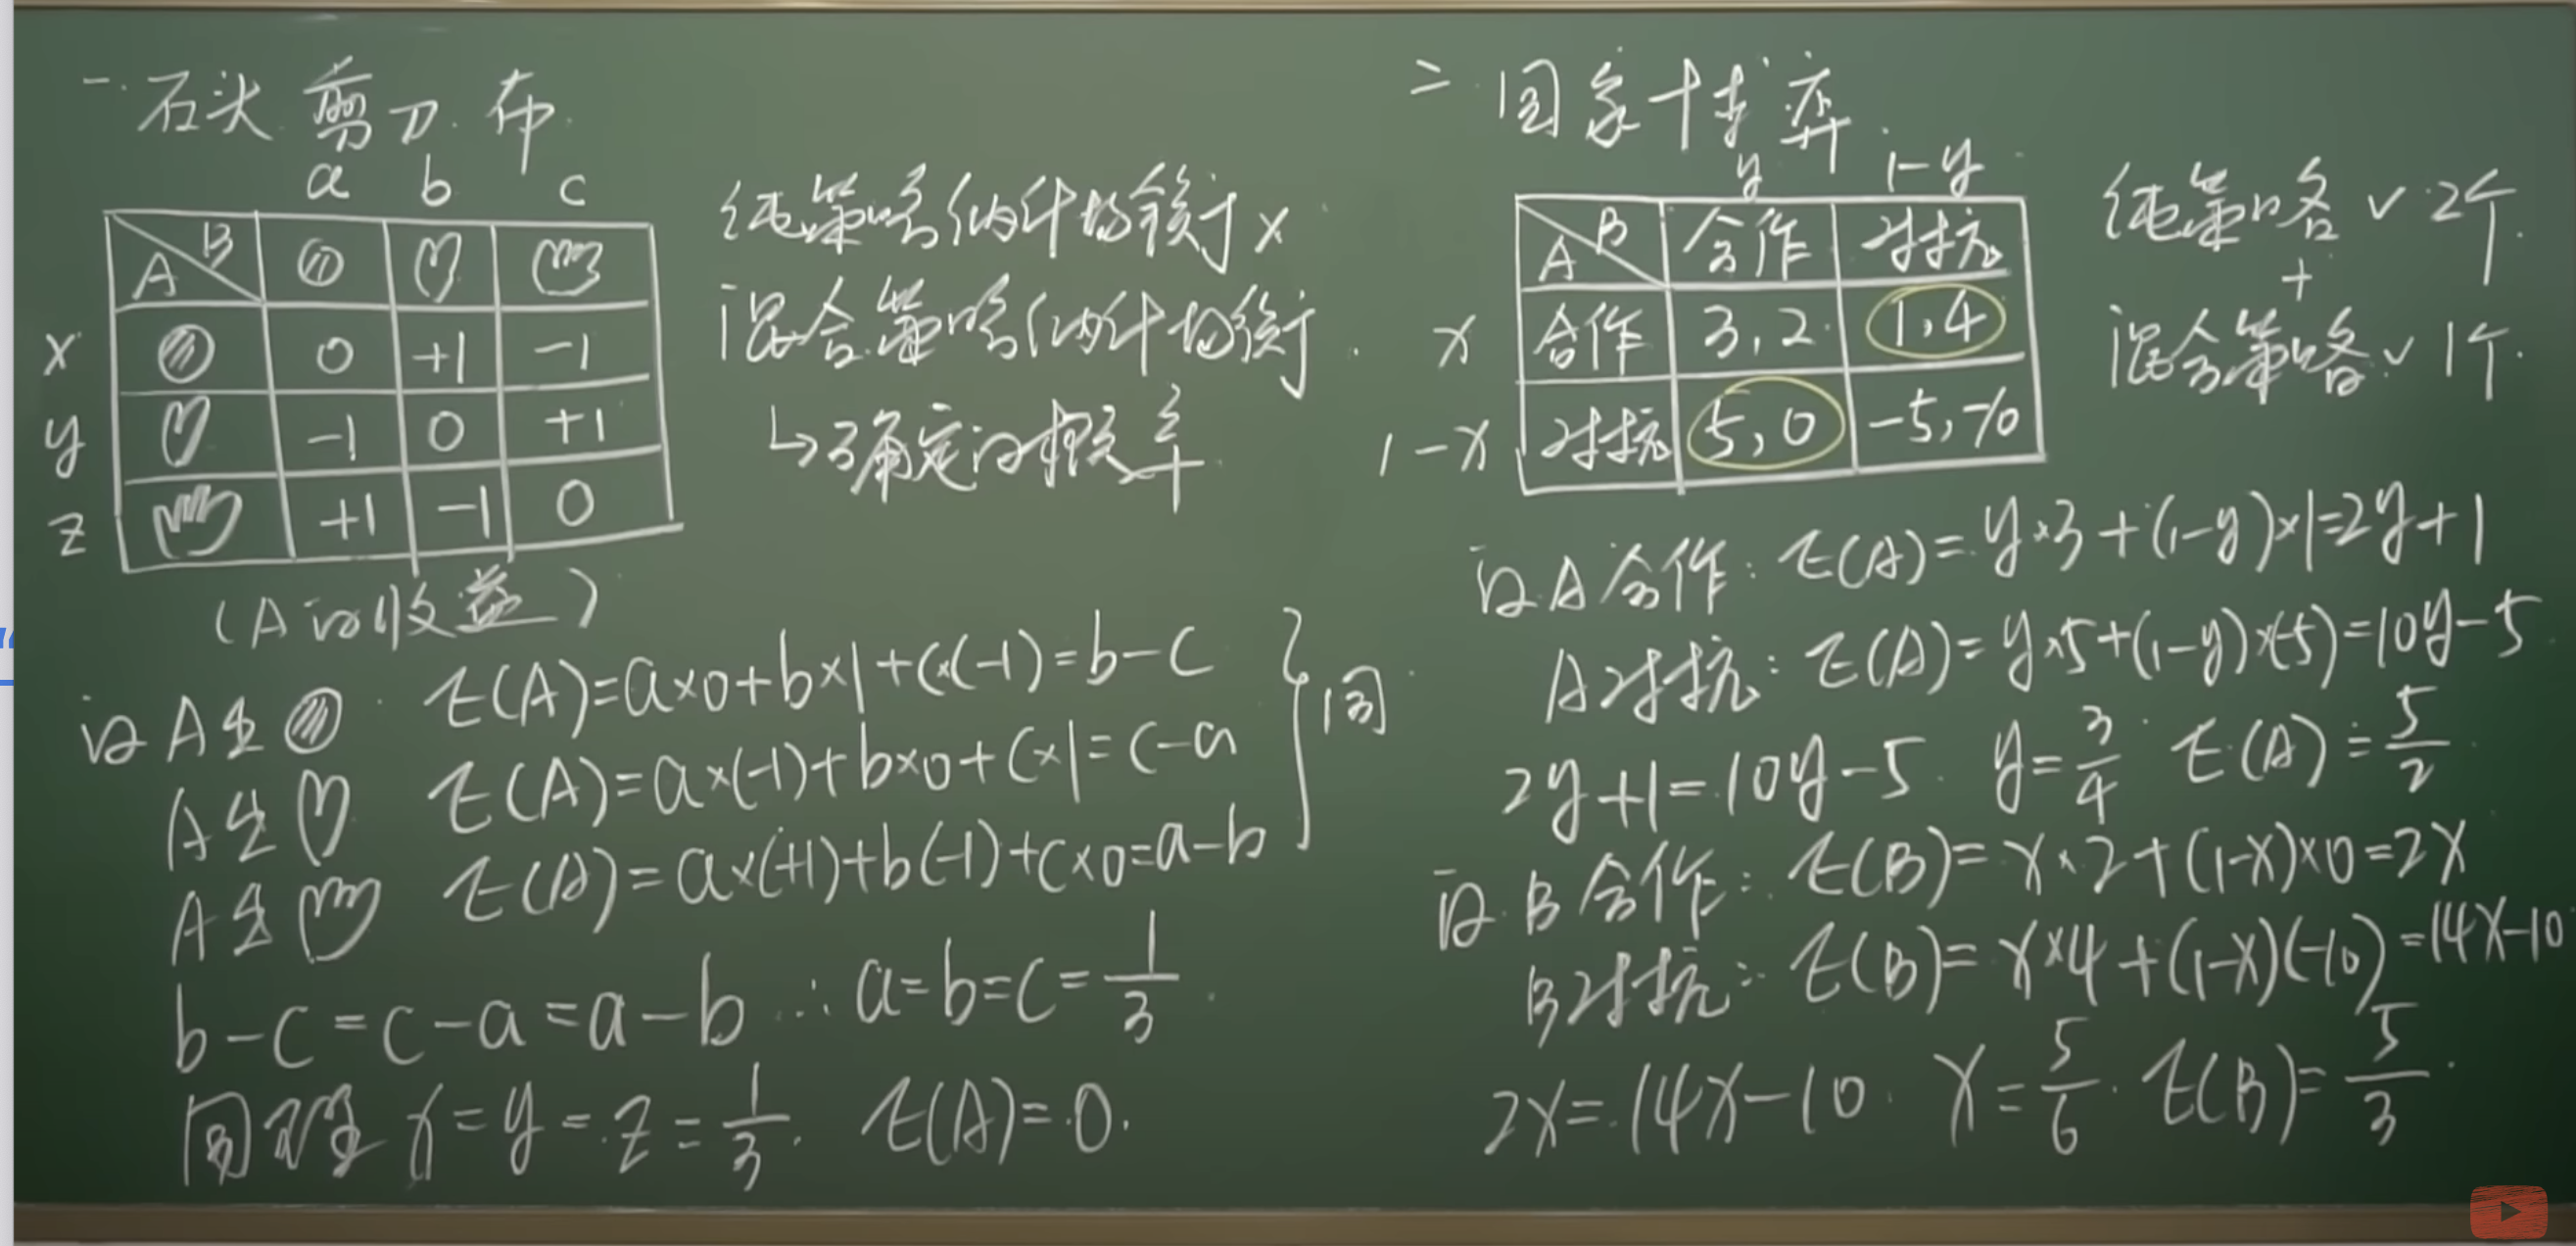 一.石头 剪刀.布.
a b c
B
A
x 0 +1 -1
y -1 0 +1
z +1 -1 0
(A的收益)
纯策略纳什均衡 x
混合策略纳什均衡.
↳确定的概率
设A出 E(A)=a×0+b×1+c×(-1)=b-c
A出 E(A)=a×(-1)+b×0+c×1=c-a
A出 E(A)=a×(+1)+b(-1)+c×0=a-b
同
b-c=c-a=a-b ∴a=b=c=1/3.
同理 x=y=z=1/3. E(A)=0.
二.国家博弈
y 1-y
B 合作 对抗
A
x 合作 3,2 1,4
1-x 对抗 5,0 -5,-10
纯策略 ✓ 2个.
+
混合策略 ✓ 1个.
设A合作: E(A)=y×3+(1-y)×1=2y+1
A对抗: E(A)=y×5+(1-y)×(-5)=10y-5
2y+1=10y-5. y=3/4. E(A)=5/2.
设B合作: E(B)=x×2+(1-x)×0=2x
B对抗: E(B)=x×4+(1-x)(-10)=14x-10
2x=14x-10. x=5/6. E(B)=5/3.